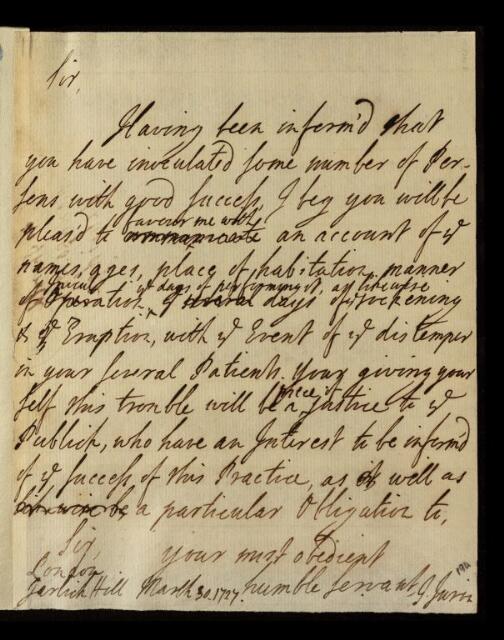 Sir,
Having been inform'd that
you have inoculated some number of Per-
sons with good success, I beg you will be
pleas'd to favour me with an account of ye
names, ages, place of habitation, manner
of Operation, ye days of performing it, as likewise
several days of sickening
& of Eruption, with ye Event of ye distemper
in your several Patients. Your giving your
self this trouble will be a piece of Justice to ye
Publick, who have an Interest to be inform'd
of ye success of this Practice, as well as
a particular Obligation to,
Sir,
your most obedient
London
Garlick Hill March 30. 1727. humble servant J. Jurin